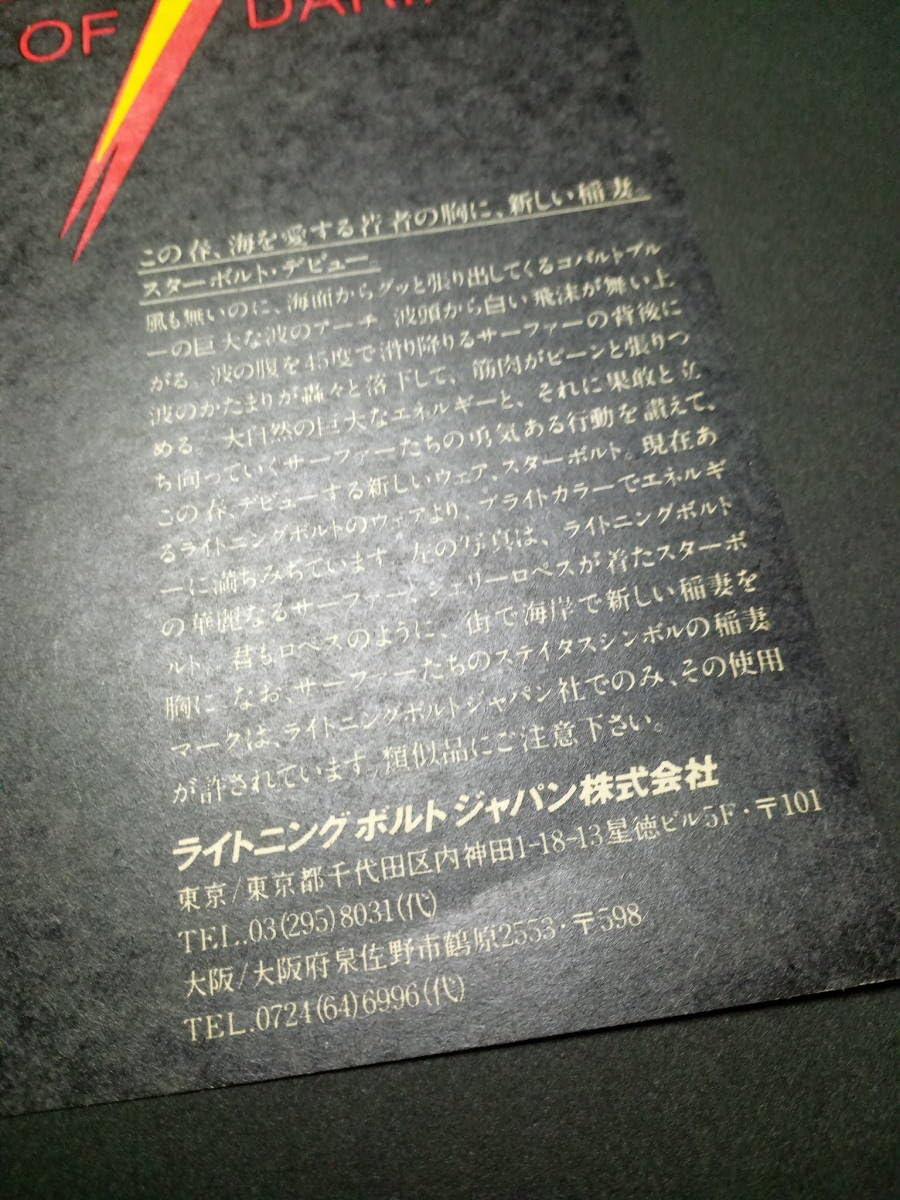 OF DARI
この春、海を愛する若者の胸に、新しい稲妻。
スターボルト・デビュー
風も無いのに、海面からグッと張り出してくるコバルトブル
ーの巨大な波のアーチ。波頭から白い飛沫が舞い上
がる。波の腹を45度で滑り降りるサーファーの背後に
波のかたまりが轟々と落下して、筋肉がビーンと張りつ
める。大自然の巨大なエネルギーと、それに果敢と立
ち向っていくサーファーたちの勇気ある行動を讃えて、
この春、デビューする新しいウェア、スターボルト。現在あ
るライトニングボルトのウェアより、ブライトカラーでエネルギ
ーに満ちみちています。左の写真は、ライトニングボルト
の華麗なるサーファー、ジェリーロペスが着たスターボ
ルト。君もロペスのように、街で海岸で新しい稲妻を
胸に。なお、サーファーたちのステイタスシンボルの稲妻
マークは、ライトニングボルトジャパン社でのみ、その使用
が許されています。類似品にご注意下さい。
ライトニング ボルト ジャパン株式会社
東京/東京都千代田区内神田1-18-13星徳ビル5F・〒101
TEL..03(295)8031(代)
大阪/大阪府泉佐野市鶴原2553・〒598
TEL.0724(64)6996(代)